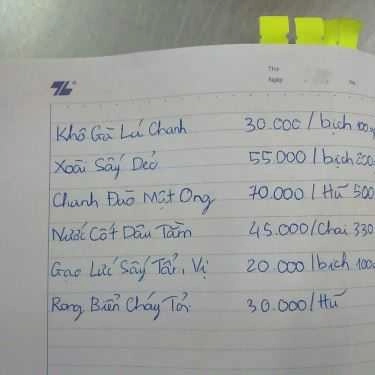 Thứ
Ngày
No
Khô Gà Lá Chanh 30.000 / bịch 100g
Xoài Sấy Dẻo 55.000 / bịch 200
Chanh Đào Mật Ong 70.000 / Hủ 500
Nước Cốt Dâu Tằm 45.000 / Chai 330
Gạo Lức Sấy Tỏi, Vị 20.000 / bịch 100
Rong Biển Cháy Tỏi 30.000 / Hủ